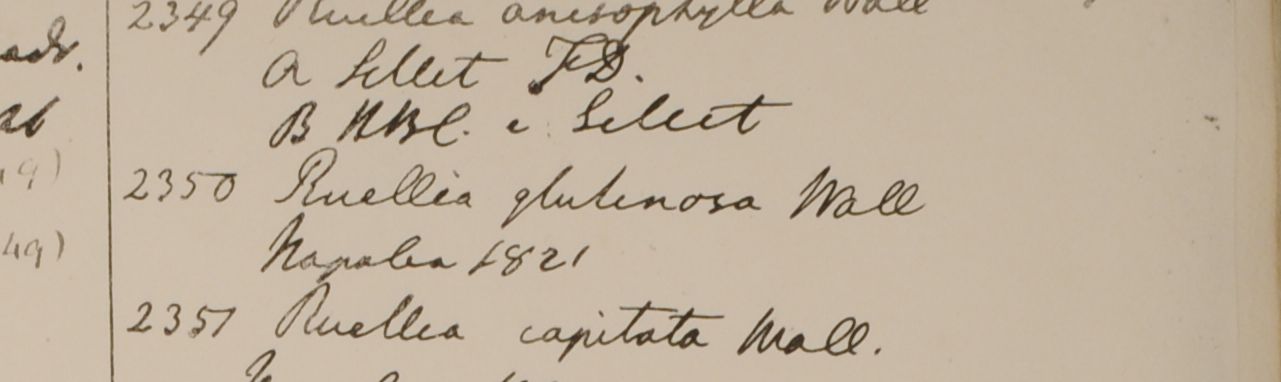 2349 Ruellia anisophylla Wall
a Sillet F.D.
B HBC. e Sillet
2350 Ruellia glutinosa Wall
Napalia 1821
2351 Ruellia capitata Wall.